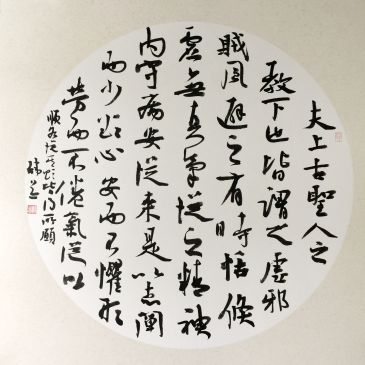 夫上古聖人之
教下也皆謂之虛邪
賊風避之有時恬惔
虛無真氣從之精神
內守病安從來是以志閑
而少欲心安而不懼形
勞而不倦氣從以
順各從其欲皆得所願